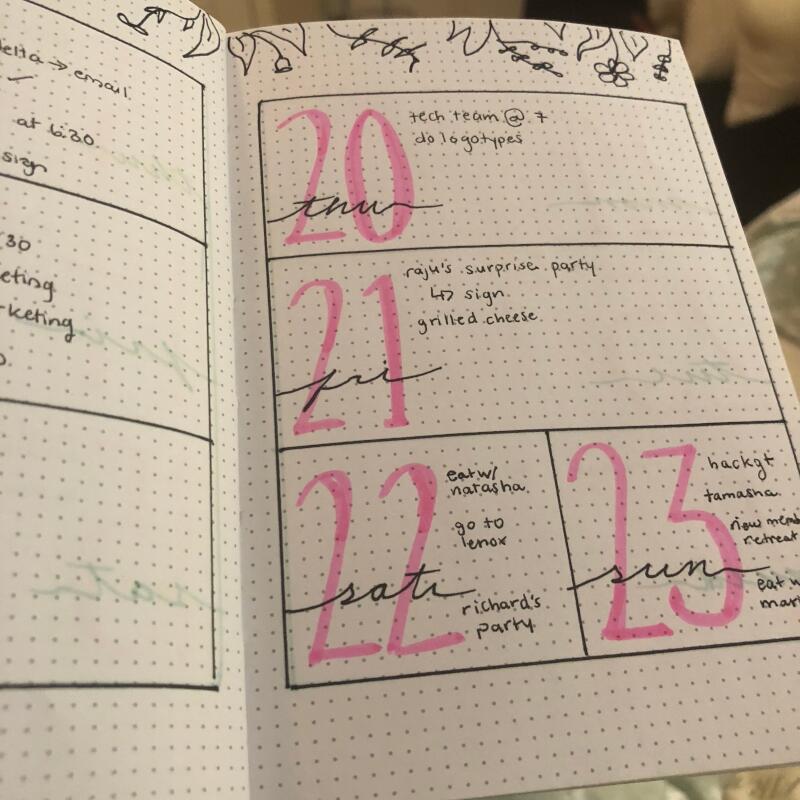 delta → email
✓
at 6:30
sign
:30
keting
20
thu
tech team @ 7
do logotypes
21
fri
raju's surprise party
↳ sign
grilled cheese
22
sat
eat w/
natasha
go to
lenox
richard's
party
23
sun
hackgt
tamasha
new
retreat
eat